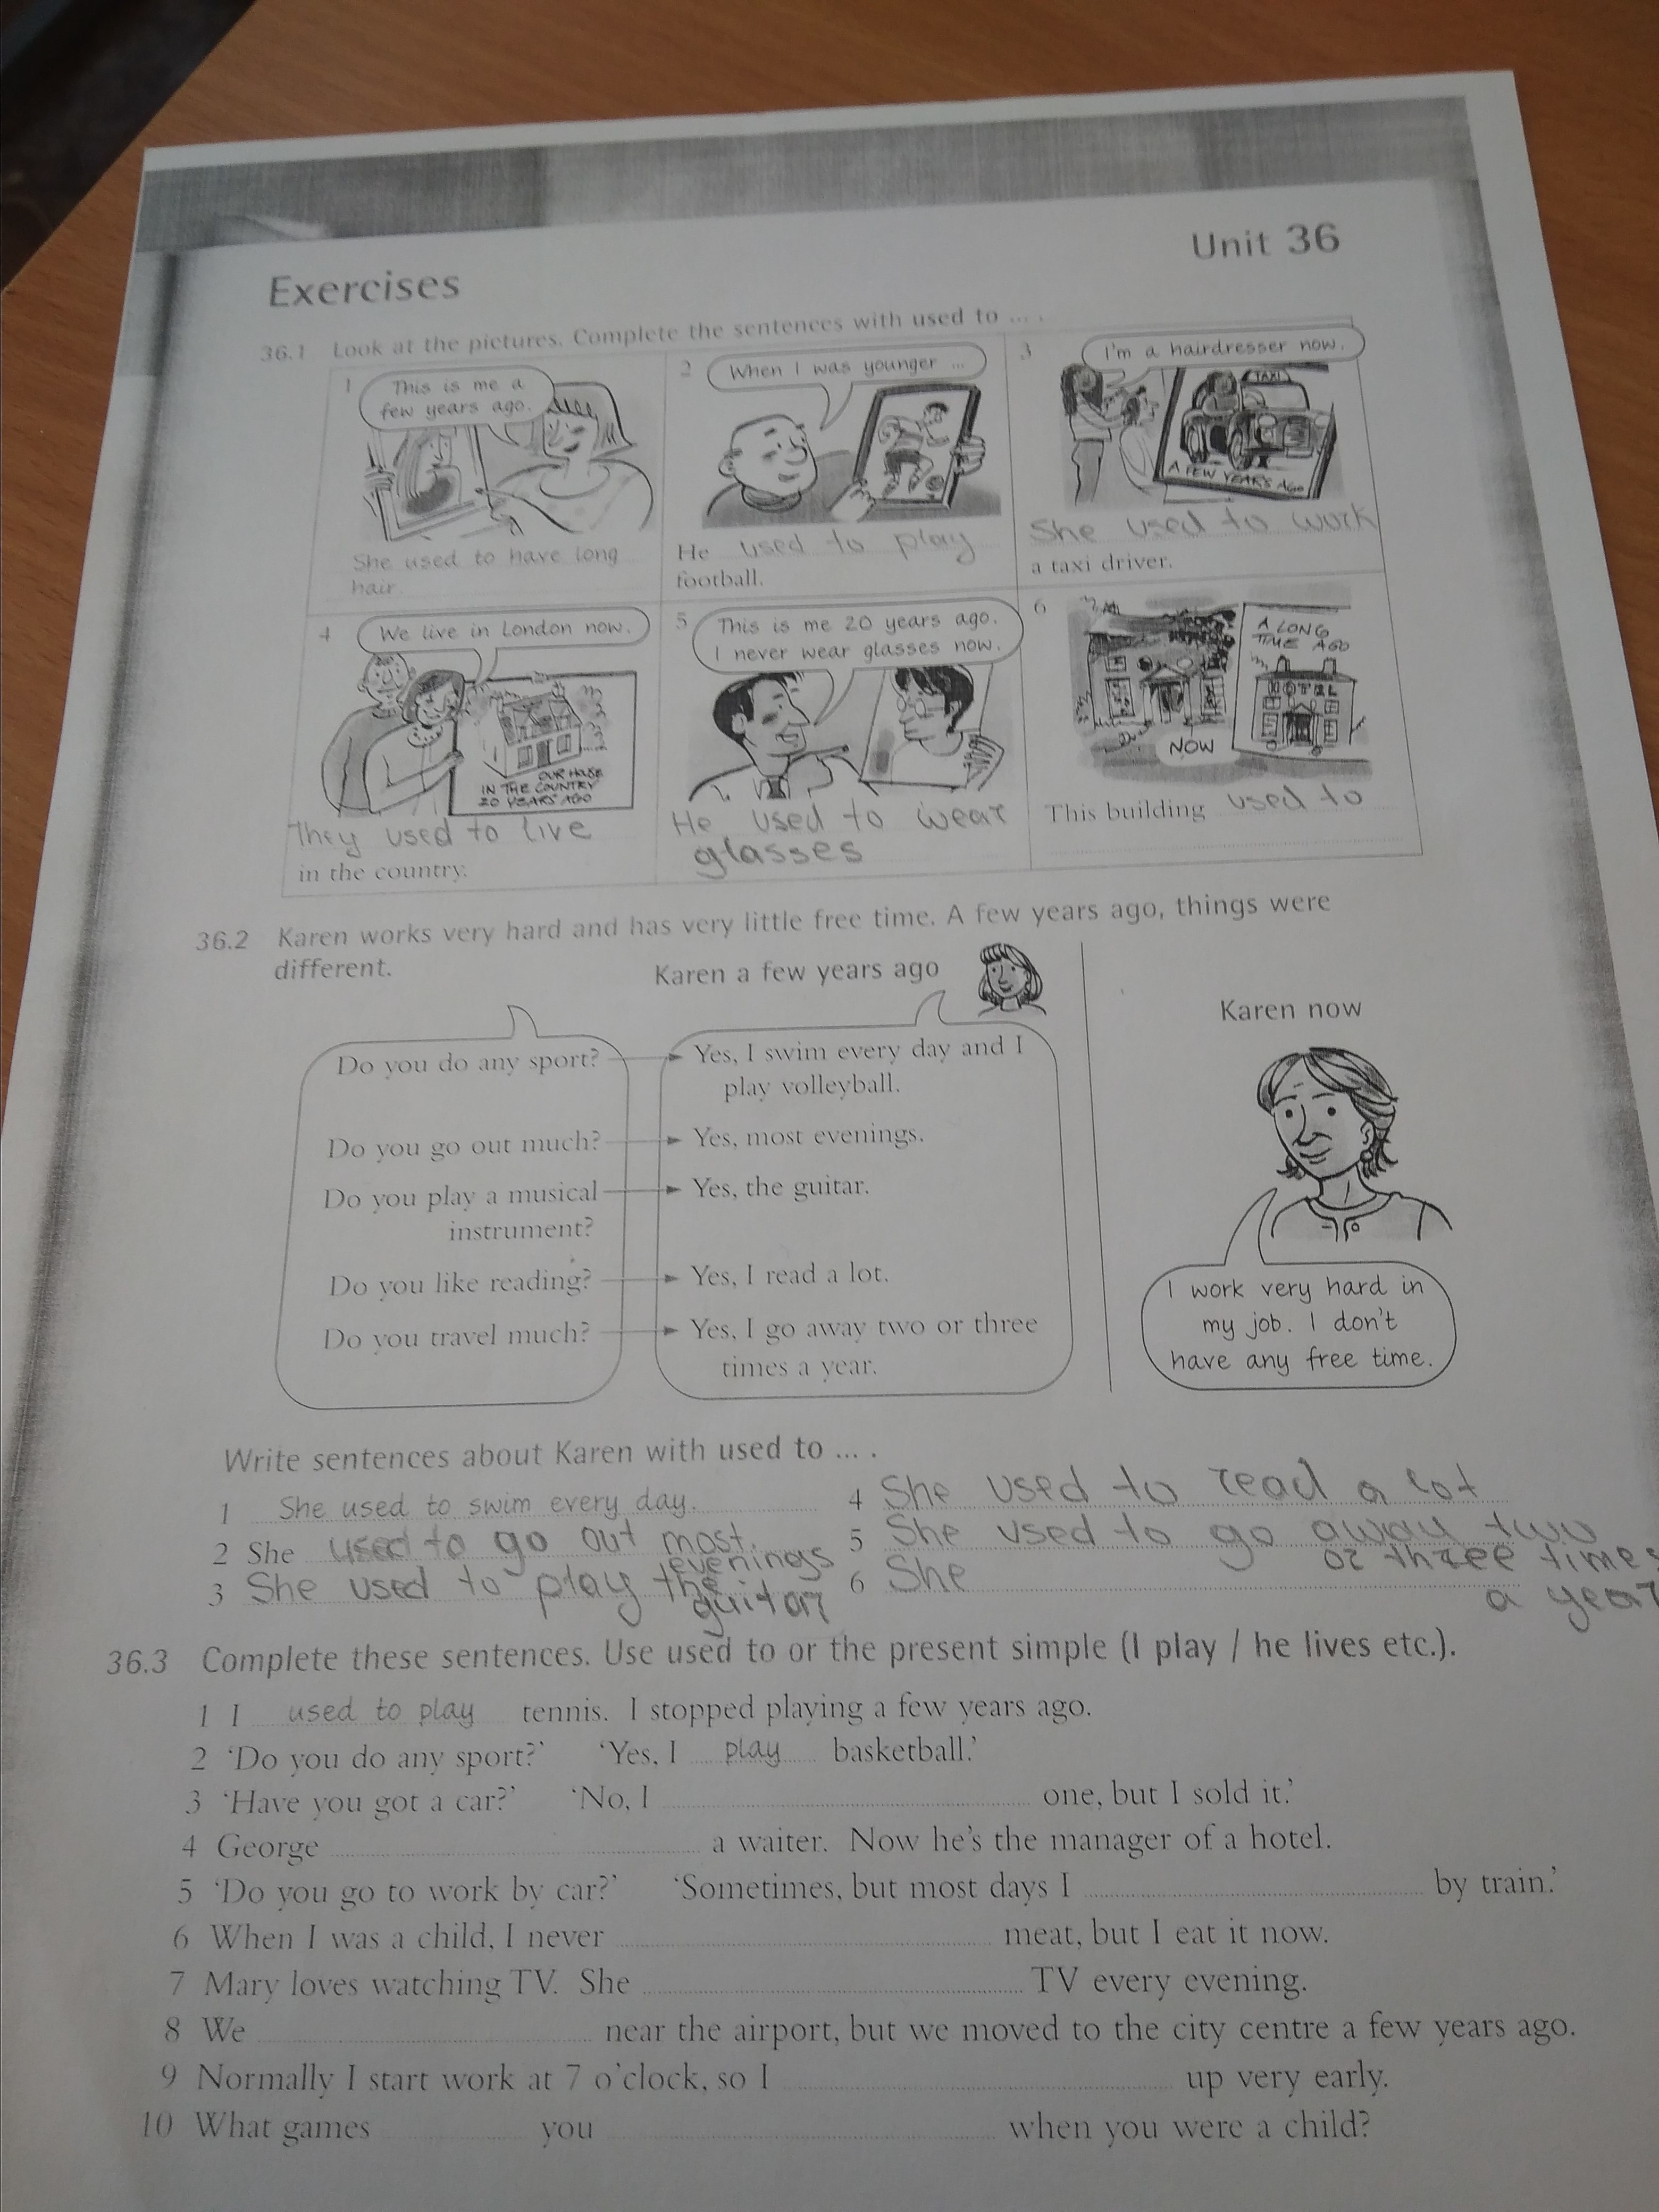 Unit 36
Exercises
36.1 Look at the pictures. Complete the sentences with used to ... .
1
This is me a
few years ago.
She used to have long
hair.
2
When I was younger ...
He used to play
football.
3
I'm a hairdresser now.
TAXI
A FEW YEARS AGO
She used to work
a taxi driver.
4
We live in London now.
OUR HOUSE
IN THE COUNTRY
20 YEARS AGO
They used to live
in the country.
5
This is me 20 years ago.
I never wear glasses now.
He used to wear
glasses
6
A LONG
TIME AGO
HOTEL
NOW
This building used to
36.2 Karen works very hard and has very little free time. A few years ago, things were
different.
Karen a few years ago
Karen now
Do you do any sport?
Yes, I swim every day and I
play volleyball.
Do you go out much?
Yes, most evenings.
Do you play a musical
instrument?
Yes, the guitar.
Do you like reading?
Yes, I read a lot.
Do you travel much?
Yes, I go away two or three
times a year.
I work very hard in
my job. I don't
have any free time.
Write sentences about Karen with used to ... .
1 She used to swim every day.
2 She used to go out most
evenings
3 She used to play the
guitar
4 She used to read a lot
5 She used to go away two
or three times
a year
6 She
36.3 Complete these sentences. Use used to or the present simple (I play / he lives etc.).
1 I used to play tennis. I stopped playing a few years ago.
2 'Do you do any sport?' 'Yes, I play basketball.'
3 'Have you got a car?' 'No, I one, but I sold it.'
4 George a waiter. Now he's the manager of a hotel.
5 'Do you go to work by car?' 'Sometimes, but most days I by train.'
6 When I was a child, I never meat, but I eat it now.
7 Mary loves watching TV. She TV every evening.
8 We near the airport, but we moved to the city centre a few years ago.
9 Normally I start work at 7 o'clock, so I up very early.
10 What games you when you were a child?